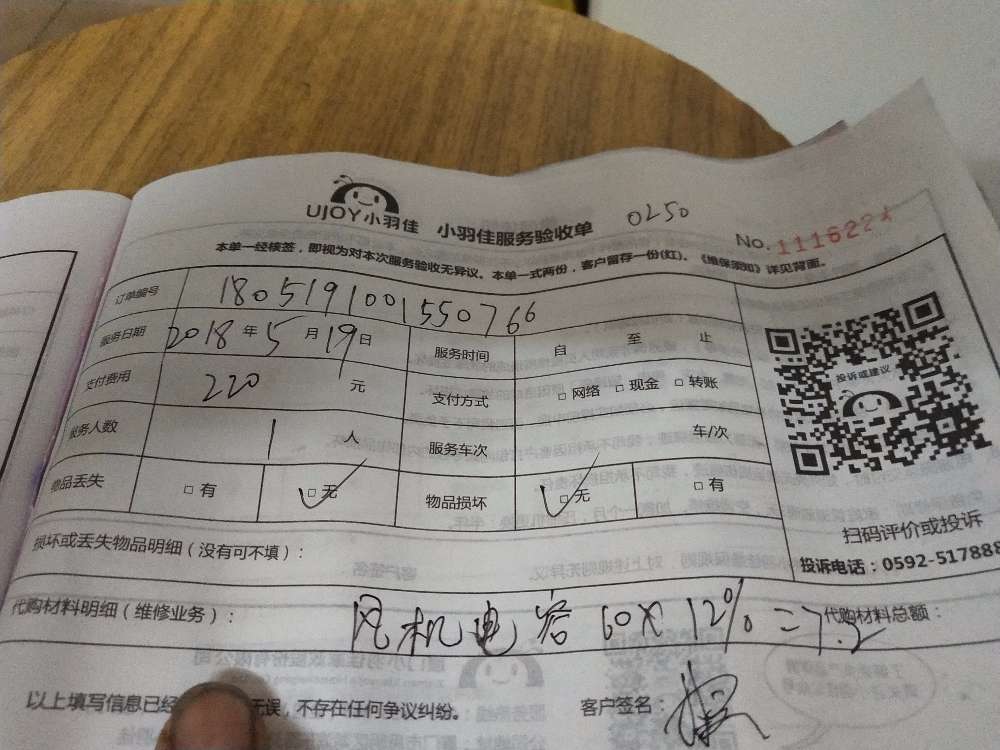 UJOY小羽佳 小羽佳服务验收单 0250
No.
本单一经核签，即视为对本次服务验收无异议。本单一式两份，客户留存一份(红)。《维保须知》详见背面。
订单编号 1805191001550766
服务日期 2018年5月19日 服务时间 自 至 止
支付费用 220 元 支付方式 □网络 □现金 □转账
服务人数 1 人 服务车次 车/次
物品丢失 □有 □无 物品损坏 □无 □有
投诉或建议
扫码评价或投诉
投诉电话：0592-517888
损坏或丢失物品明细（没有可不填）：
代购材料明细（维修业务）： 风机电容 60×12%=7.2 代购材料总额：
以上填写信息已经 无误，不存在任何争议纠纷。 客户签名：